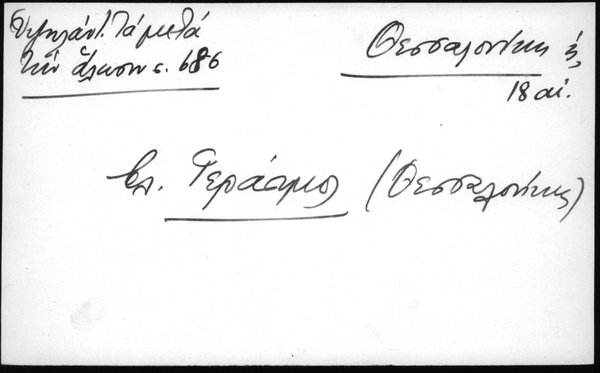 Ὑψηλάντ. Τά μετά
τήν ἅλωσιν σ. 686
Θεσσαλονίκης ἐ.
18 αἰ.
βλ. Γεράσιμος (Θεσσαλονίκης)